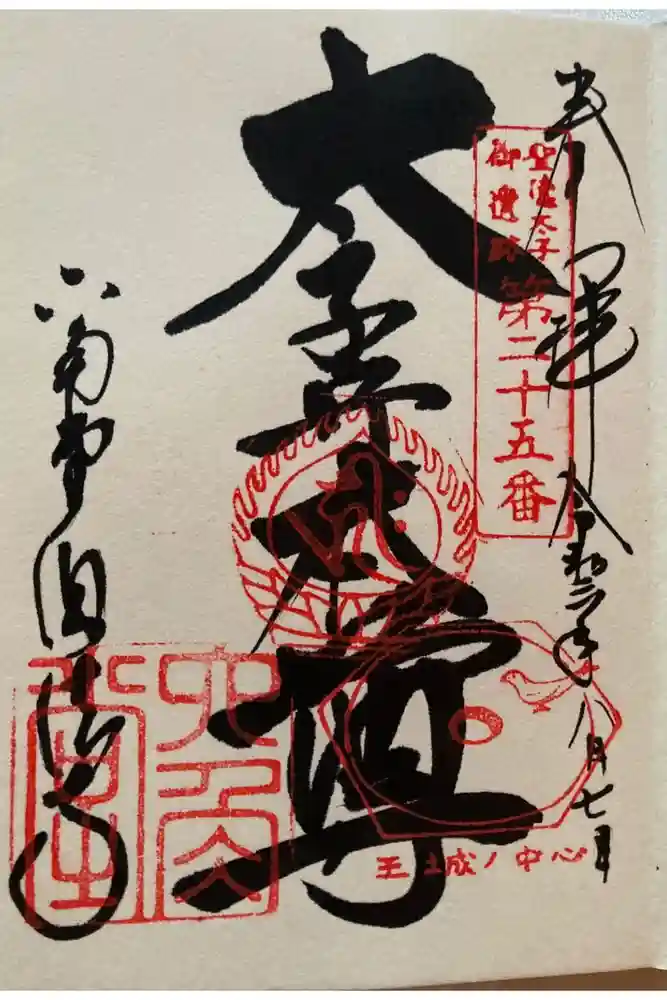 奉拝 令和二年八月七日
聖徳太子
御遺跡
第二十五番
本尊
王城ノ中心
六角堂